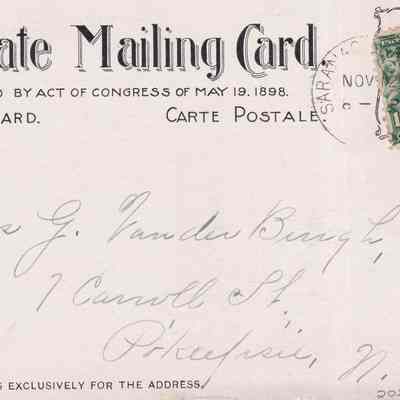 ate Mailing Card.
D BY ACT OF CONGRESS OF MAY 19. 1898.
ARD. CARTE POSTALE.
SARAT
NOV
s G. Vander Burgh,
7 Carroll St.,
Po'keepsie, N.
S EXCLUSIVELY FOR THE ADDRESS.